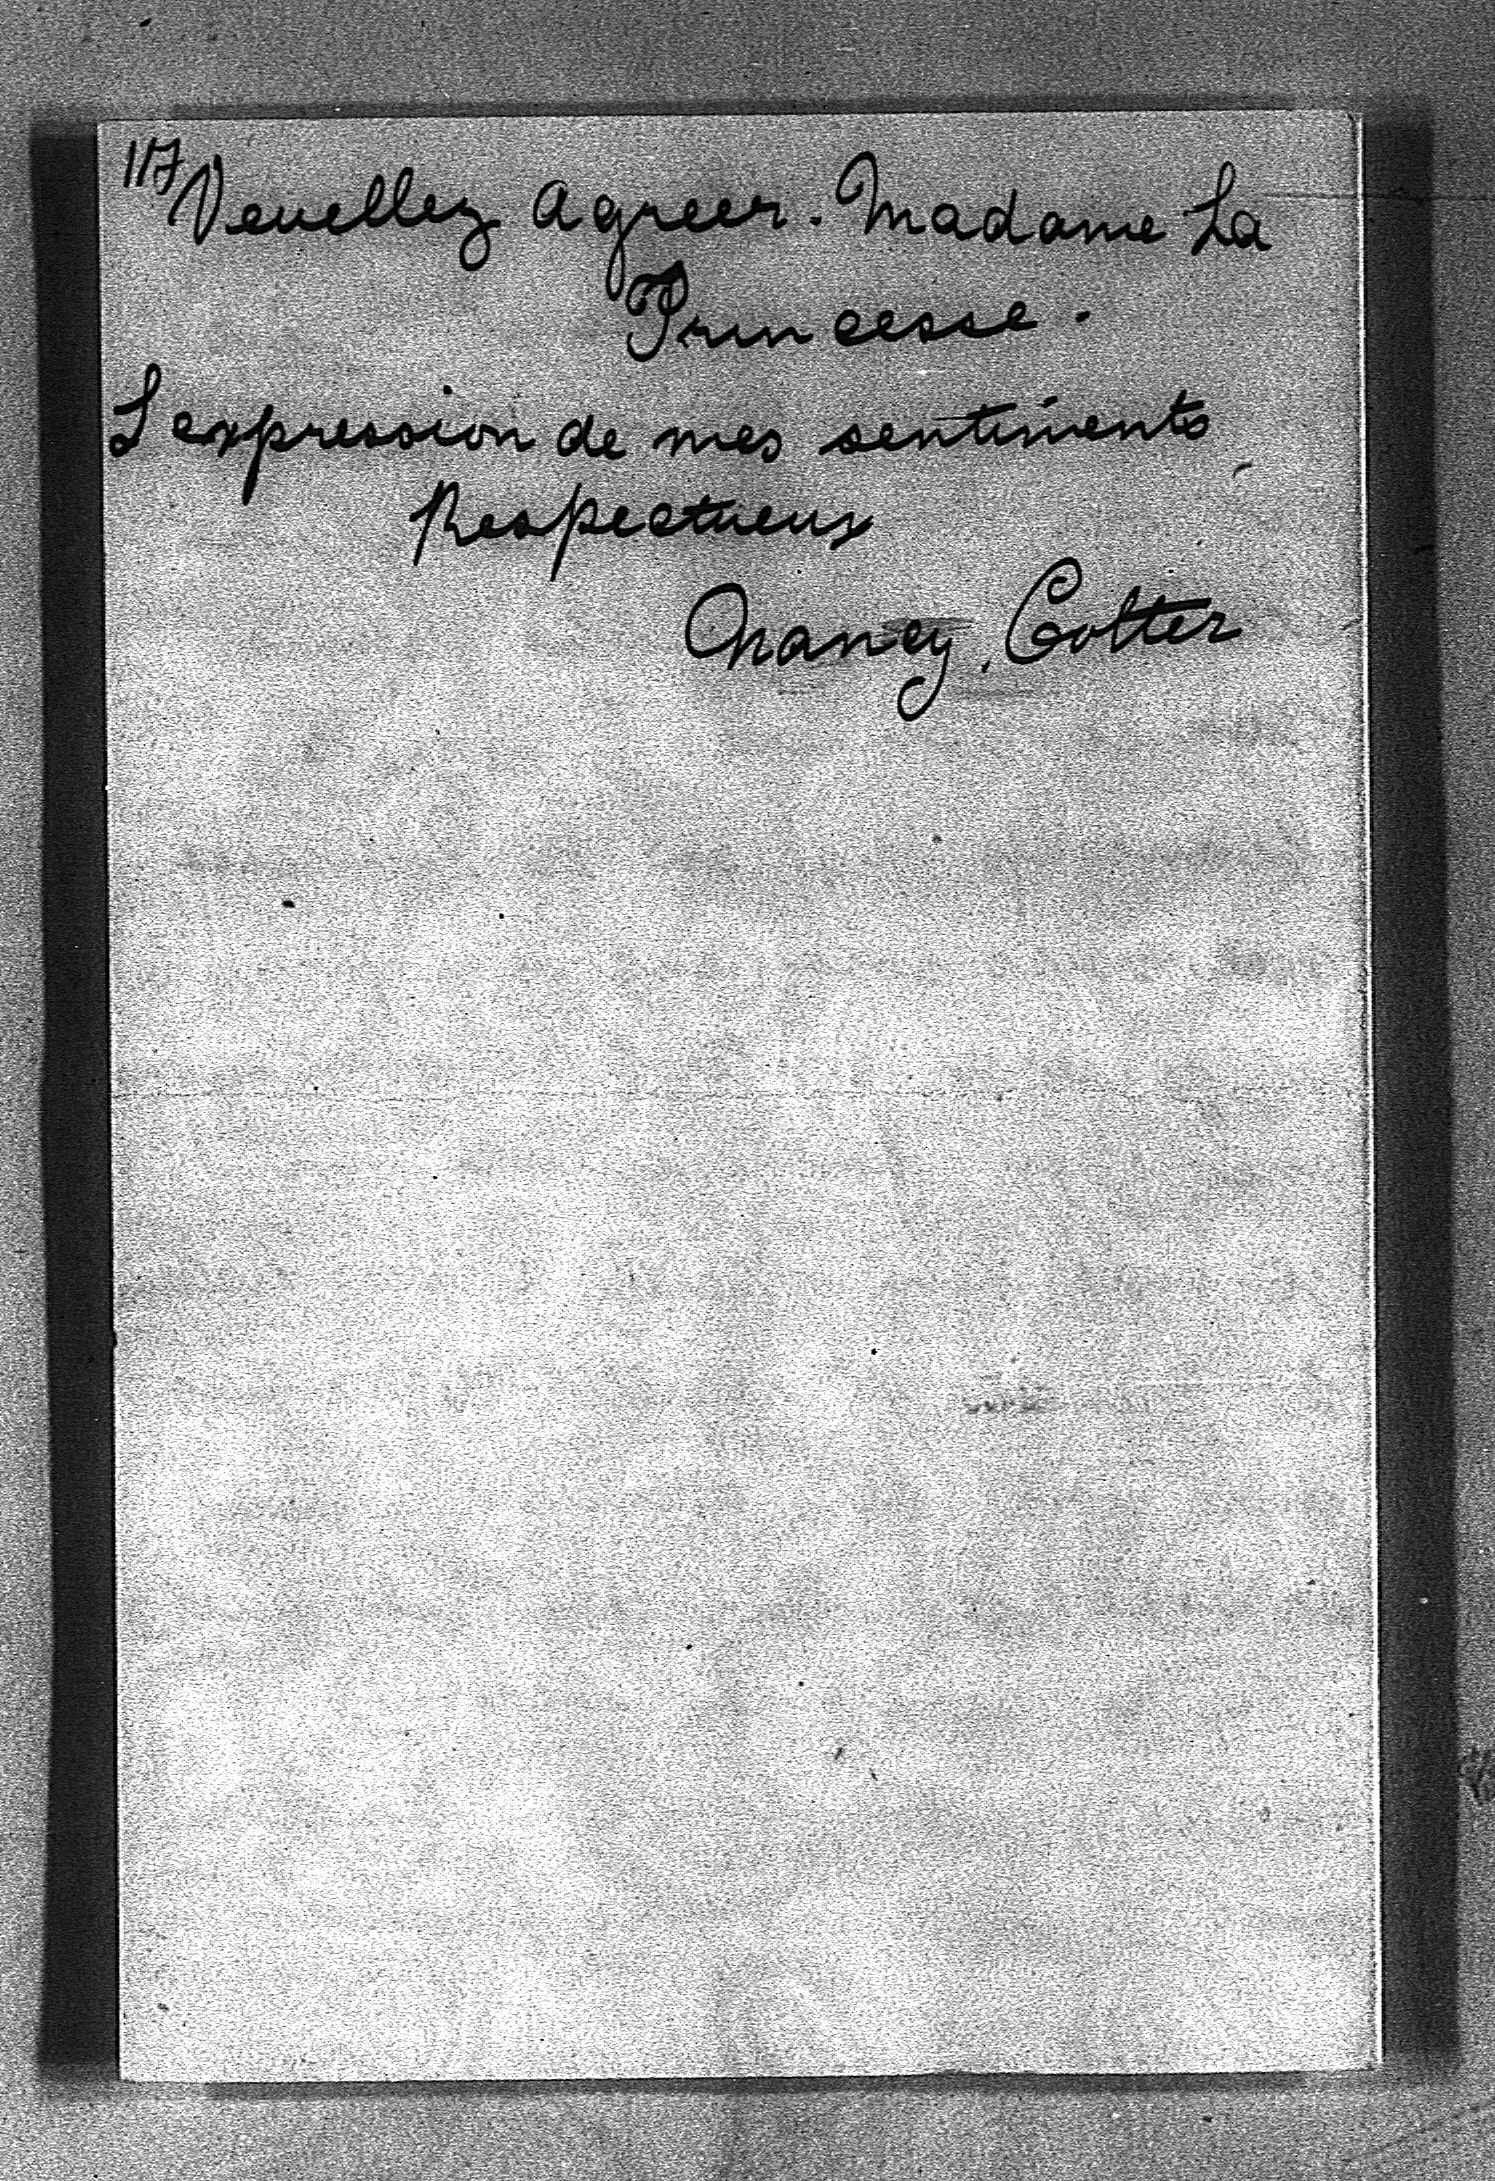 117
Veuellez agreer. Madame La
Princesse.
L expression de mes sentiments
Respectueux
Nancy. Cotter